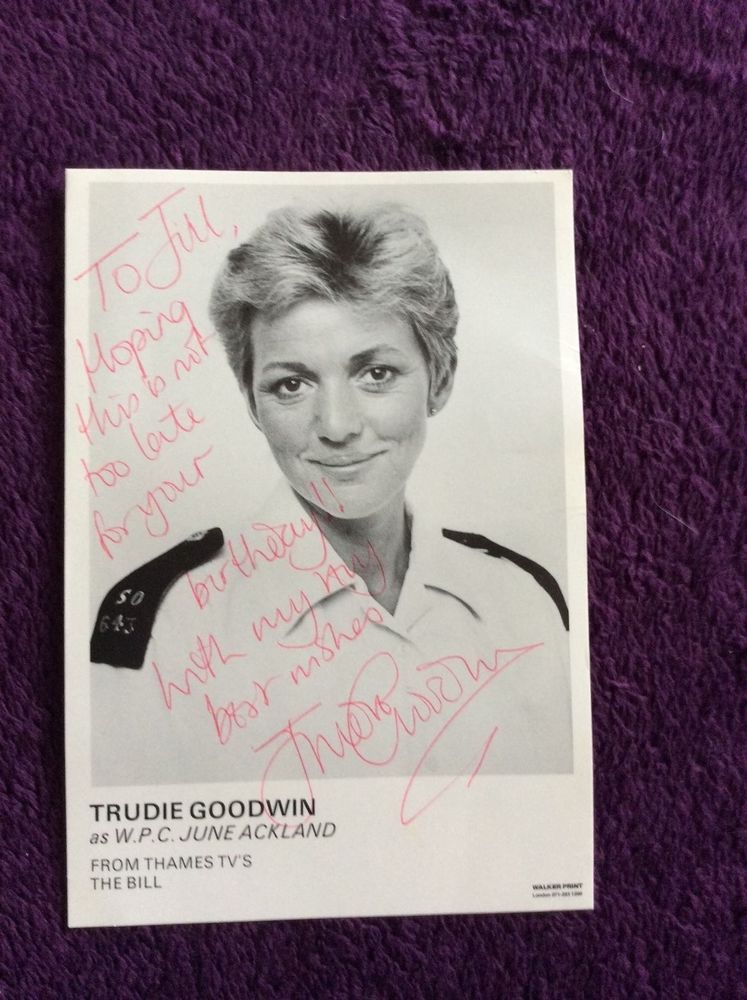 To Jill,
Hoping
this is not
too late
for your
birthday!!
with my very
best wishes
Trudie Goodwin
SO
643
TRUDIE GOODWIN
as W.P.C. JUNE ACKLAND
FROM THAMES TV'S
THE BILL
WALKER PRINT